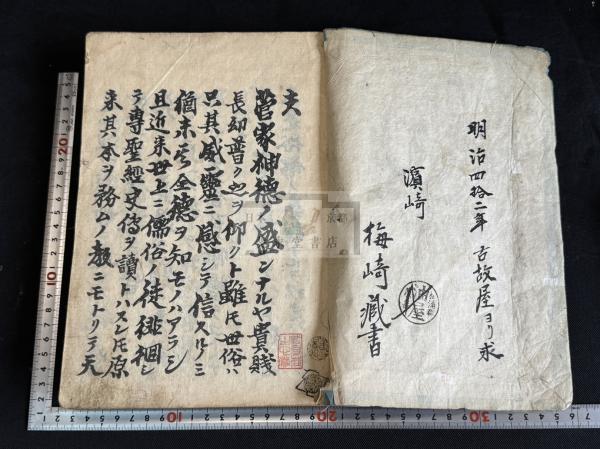 明治四拾二年 古故屋ヨリ求
濱崎
梅崎藏書
夫
菅家神徳ノ盛ンナルヤ貴賤
長幼普ク之ヲ仰クト雖モ世俗ハ
只其威靈ニ感シテ信スルノミ
猶未タ全徳ヲ知モノハアラシ
且近来世上ニ儒俗ノ徒徘徊シ
テ専聖經史傳ヲ讀トハスレモ原
来其本ヲ務ムノ教ニモトリテ天